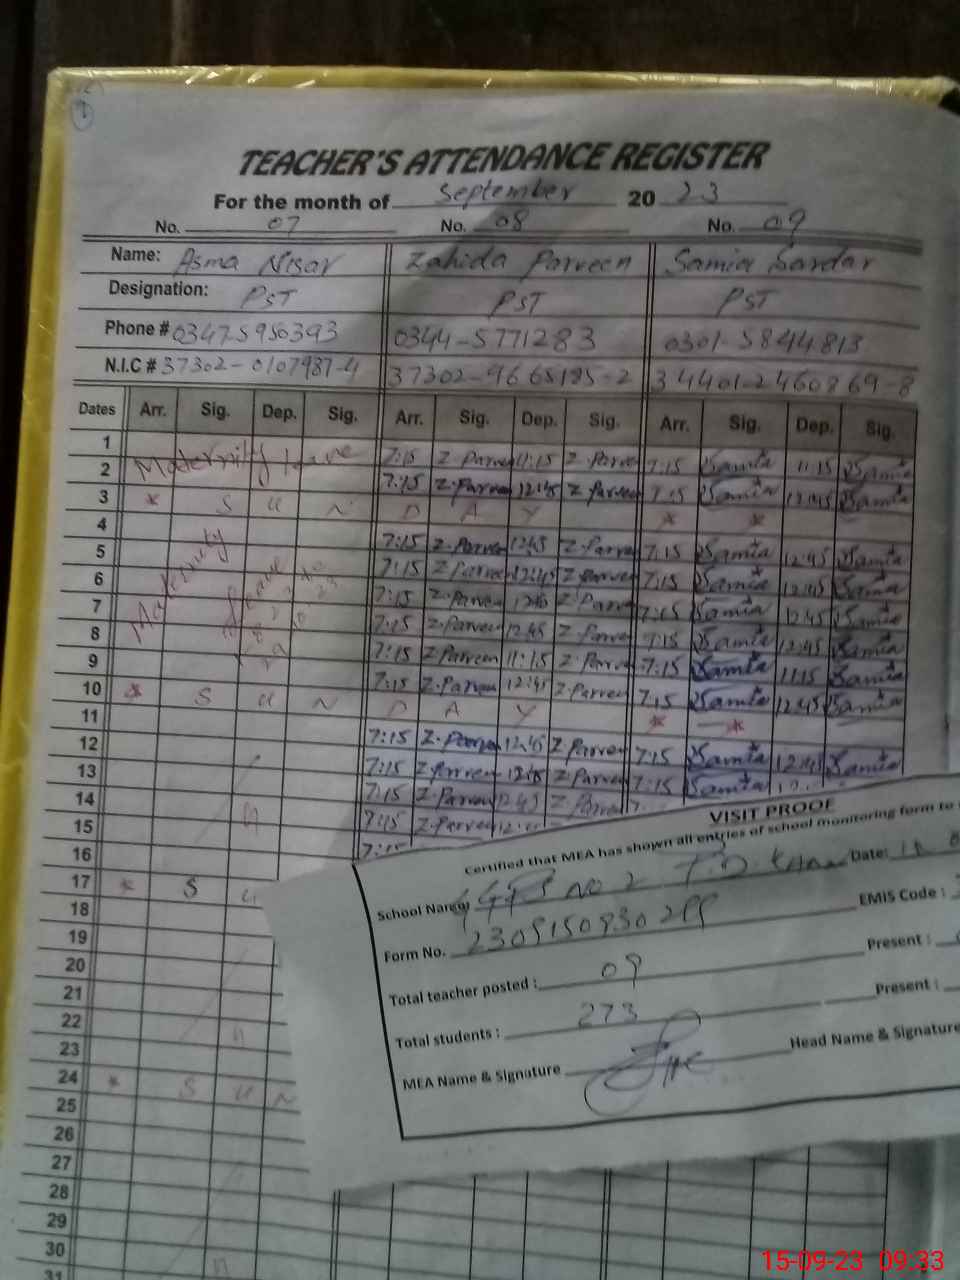 TEACHER'S ATTENDANCE REGISTER
For the month of September 20 23
No. 07 No. 08 No. 09
Name: Asma Nisar Zahida Parveen Samia Sardar
Designation: PST PST PST
Phone # 0347-5950393 0344-5771283 0301-5844813
N.I.C # 37302-0107987-4 37302-9665185-2 34401-2460869-8
Dates Arr. Sig. Dep. Sig. Arr. Sig. Dep. Sig. Arr. Sig. Dep. Sig.
1 7:15 Z.Parveen 11:15 Z.Parveen 7:15 Samia 11:15 Samia
2 7:15 Z.Parveen 12:45 Z.Parveen 7:15 Samia 12:45 Samia
3 * S U N D A Y * *
4 7:15 Z.Parveen 12:45 Z.Parveen 7:15 Samia 12:45 Samia
5 7:15 Z.Parveen 12:45 Z.Parveen 7:15 Samia 12:45 Samia
6 7:15 Z.Parveen 12:45 Z.Parveen 7:15 Samia 12:45 Samia
7 7:15 Z.Parveen 12:45 Z.Parveen 7:15 Samia 12:45 Samia
8 7:15 Z.Parveen 11:15 Z.Parveen 7:15 Samia 11:15 Samia
9 7:15 Z.Parveen 12:45 Z.Parveen 7:15 Samia 12:45 Samia
10 * S U N D A Y * *
11 7:15 Z.Parveen 12:45 Z.Parveen 7:15 Samia 12:45 Samia
12 7:15 Z.Parveen 12:45 Z.Parveen 7:15 Samia
13 7:15 Z.Parveen 12:45 Z.Parveen
14 7:15 Z.Parveen
15 7:15
16
17 * S U
18
19
20
21
22
23
24 * S U N
25
26
27
28
29
30
31
Maternity Leave
VISIT PROOF
Certified that MEA has shown all entries of school monitoring form to
School Name: NO 2 Date:
Form No. EMIS Code :
Total teacher posted : 09 Present :
Total students : 273 Present :
MEA Name & Signature Head Name & Signature
15-09-23 09:33